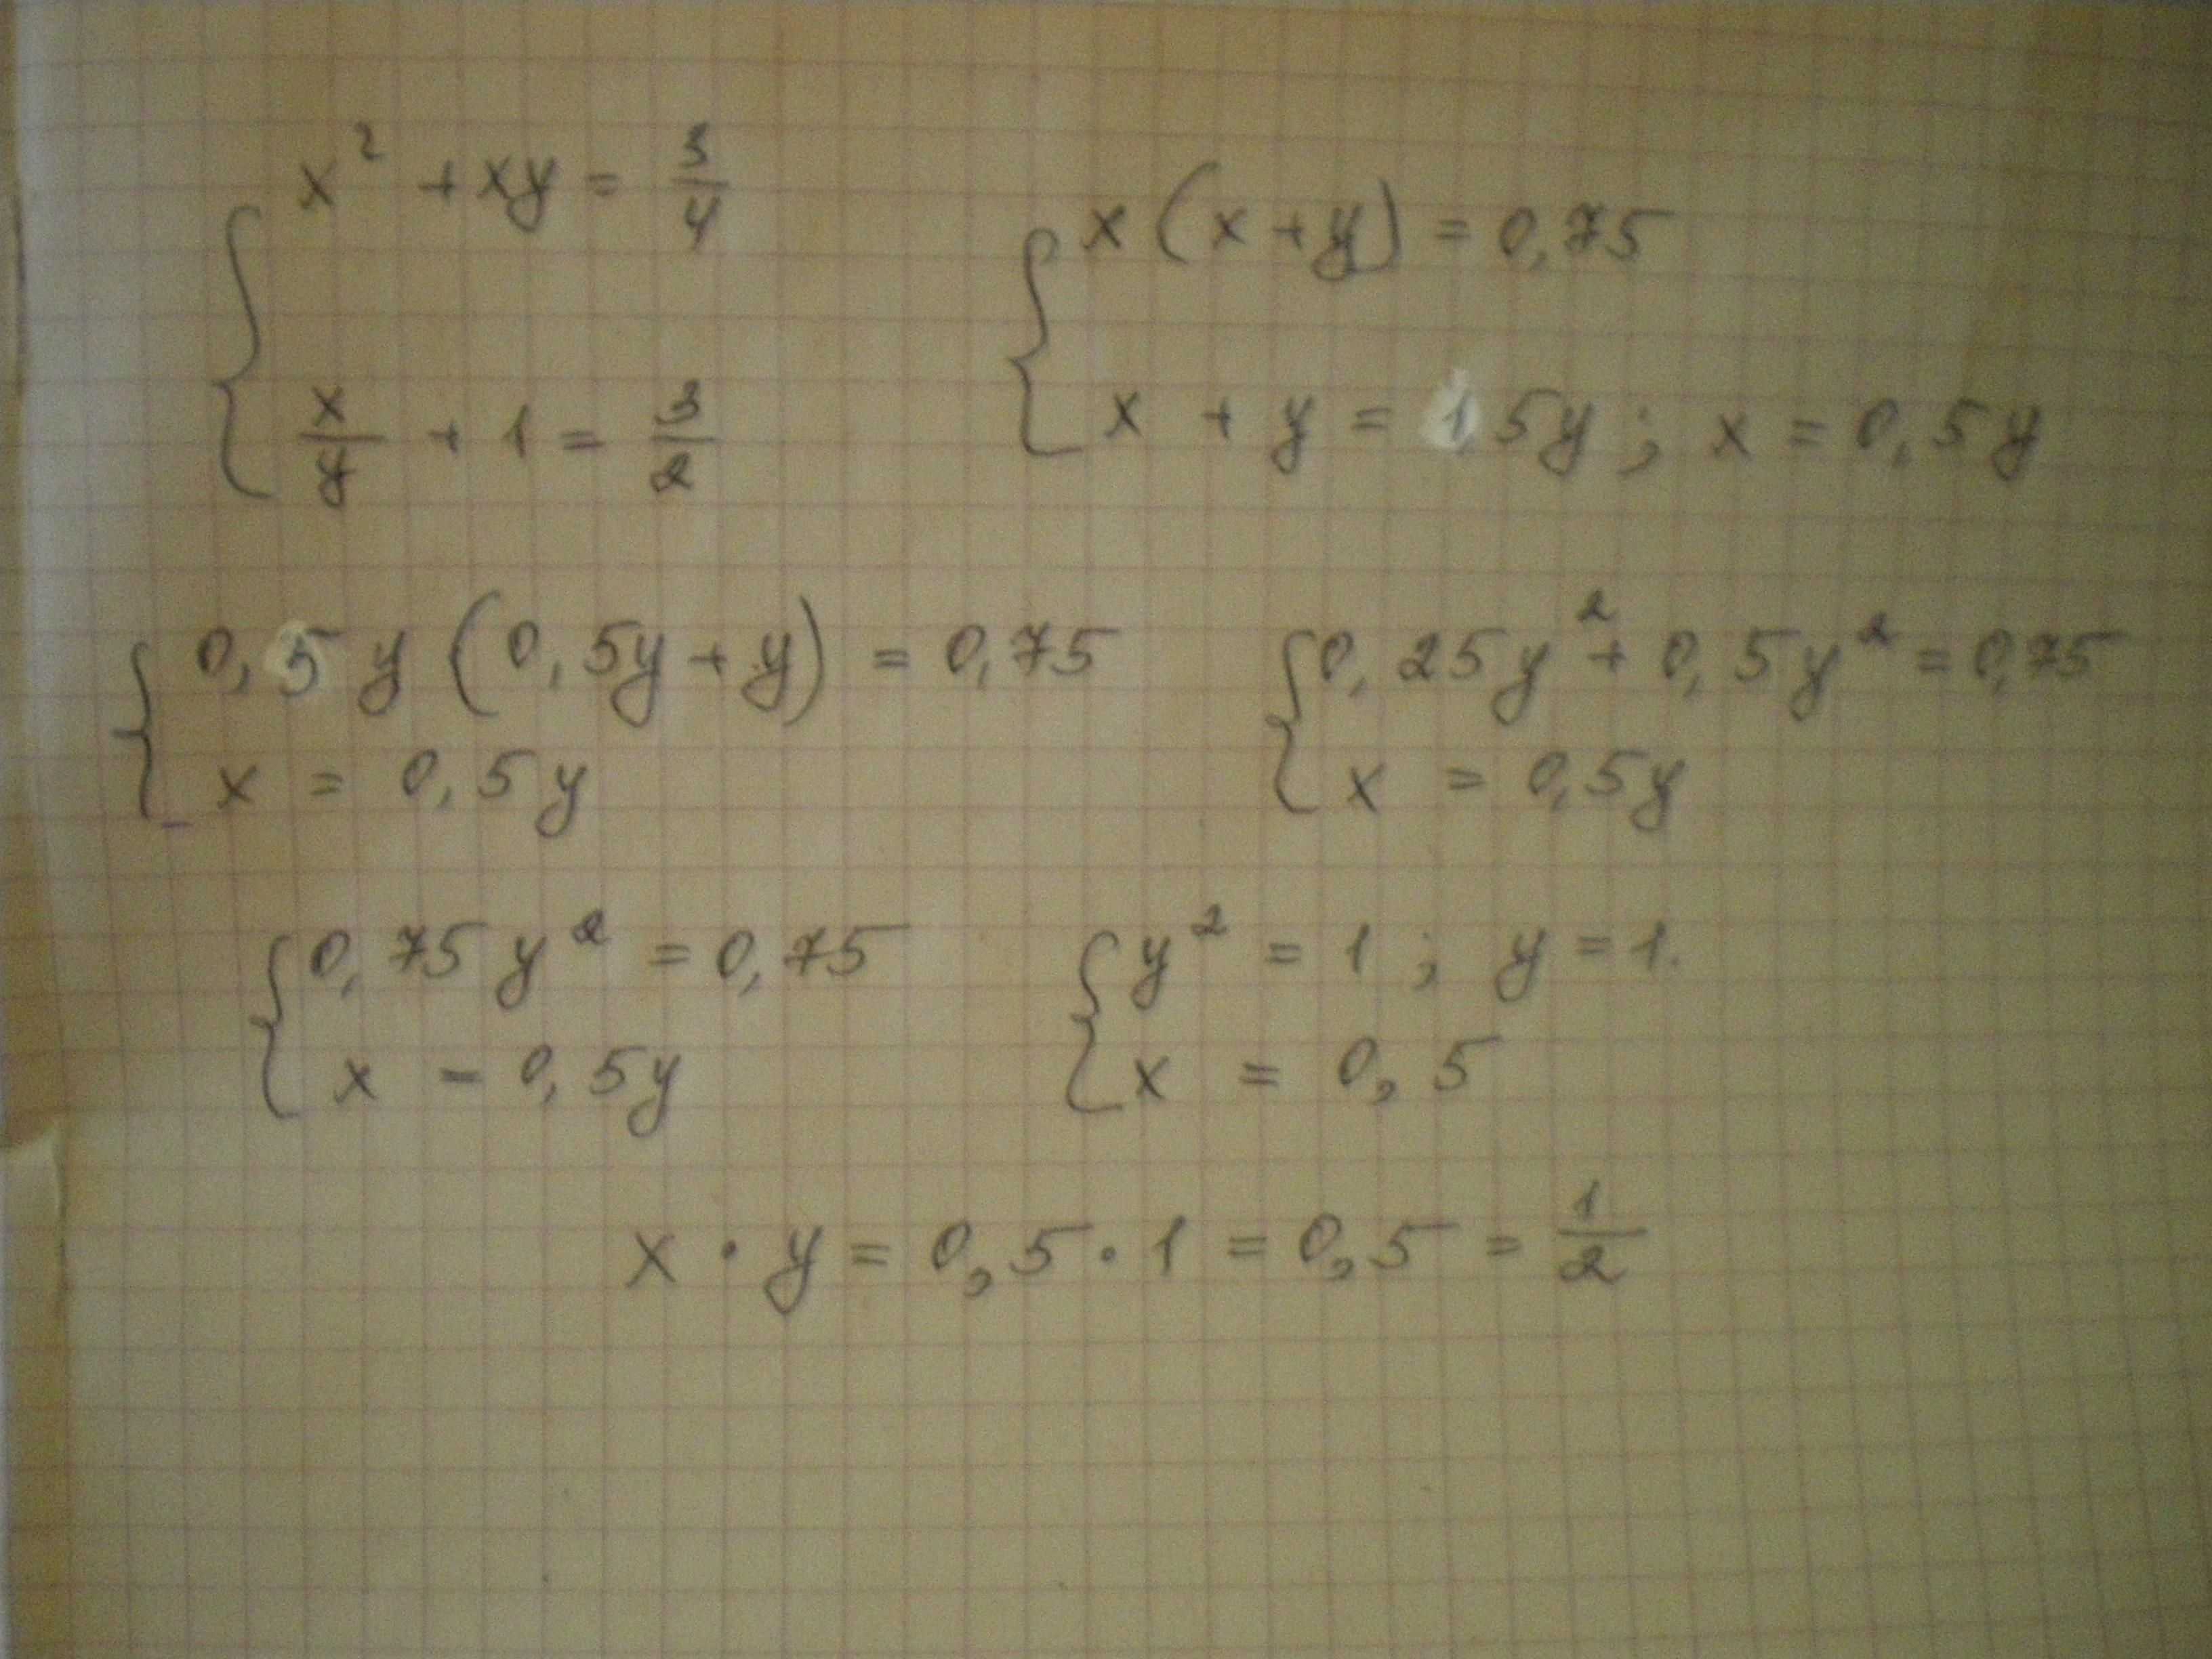 x² + xy = 3/4
x/y + 1 = 3/2
x(x+y) = 0,75
x + y = 1,5y ; x = 0,5y
0,5y (0,5y+y) = 0,75
x = 0,5y
0,25y² + 0,5y² = 0,75
x = 0,5y
0,75y² = 0,75
x = 0,5y
y² = 1 ; y = 1.
x = 0,5
x · y = 0,5 · 1 = 0,5 = 1/2